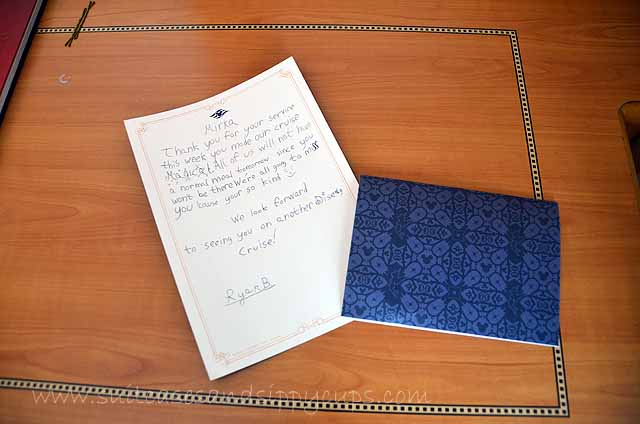 Mirka
Thank you for your service
this week you made our cruise
Magical. All of us will not have
a normal meal tomorrow since you
wont be there Were all going to miss
you cause your so kind
We look forward
to seeing you on another
Cruise!
Ryan B
www.suitcasesandsippycups.com